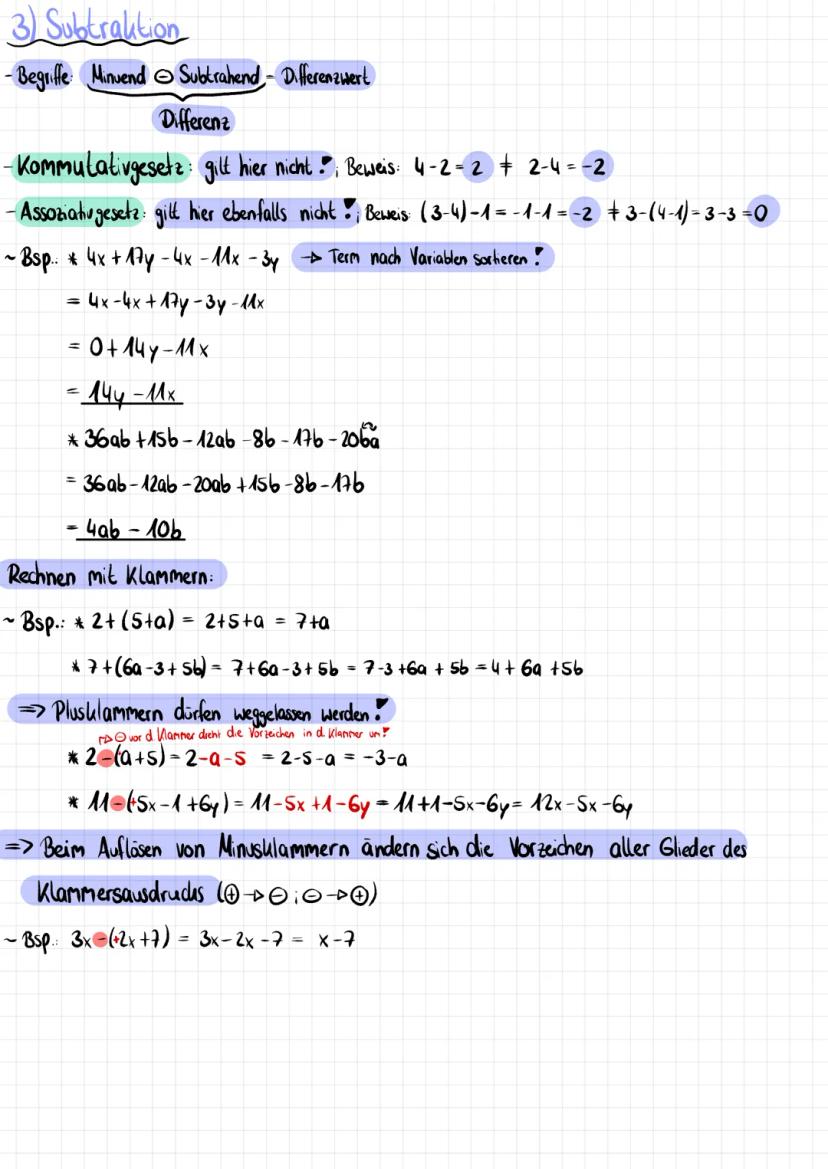 3) Subtraktion
- Begriffe: Minuend ⊖ Subtrahend = Differenzwert
Differenz
- Kommutativgesetz: gilt hier nicht!; Beweis: 4-2=2 ≠ 2-4=-2
- Assoziativgesetz: gilt hier ebenfalls nicht!; Beweis: (3-4)-1=-1-1=-2 ≠ 3-(4-1)=3-3=0
~ Bsp.: * 4x+17y-4x-11x-3y → Term nach Variablen sortieren!
= 4x-4x+17y-3y-11x
= 0+14y-11x
= 14y-11x
* 36ab+15b-12ab-8b-17b-20ba
= 36ab-12ab-20ab+15b-8b-17b
= 4ab-10b
Rechnen mit Klammern:
~ Bsp.: * 2+(5+a) = 2+5+a = 7+a
* 7+(6a-3+5b) = 7+6a-3+5b = 7-3+6a+5b = 4+6a+5b
=> Plusklammern dürfen weggelassen werden!
↱ ⊖ vor d. Klammer dreht die Vorzeichen in d. Klammer um!
* 2-(a+5) = 2-a-5 = 2-5-a = -3-a
* 11-(+5x-1+6y) = 11-5x+1-6y = 11+1-5x-6y = 12x-5x-6y
=> Beim Auflösen von Minusklammern ändern sich die Vorzeichen aller Glieder des
Klammersausdrucks (⊕→⊖; ⊖→⊕)
~ Bsp.: 3x-(+2x+7) = 3x-2x-7 = x-7